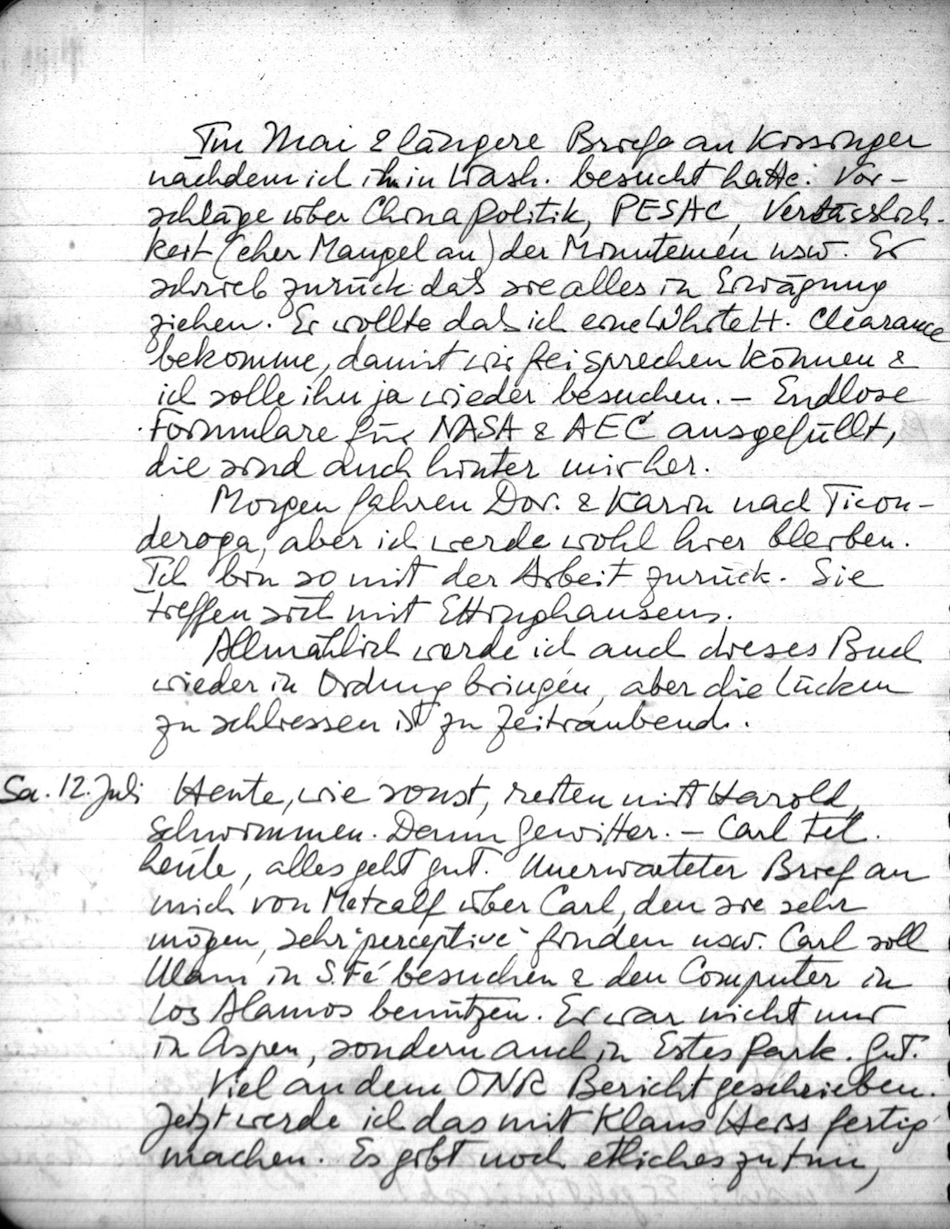 Im Mai 2 längere Briefe an Kissinger
nachdem ich ihn in Wash. besucht hatte: Vor-
schläge über Chinapolitik, PESAC, Verlässlich-
keit (eher Mangel an) der Minutemen usw. Er
schrieb zurück daß sie alles in Erwägung
ziehen. Er wollte daß ich eine White H. Clearance
bekomme, damit wir frei sprechen können &
ich solle ihn ja wieder besuchen. – Endlose
Formulare für NASA & AEC ausgefüllt,
die sind auch hinter mir her.
Morgen fahren Dor. & Karin nach Ticon-
deroga, aber ich werde wohl hier bleiben.
Ich bin so mit der Arbeit zurück. Sie
treffen sich mit Ettinghausens.
Allmählich werde ich auch dieses Buch
wieder in Ordnung bringen, aber die Lücken
zu schliessen ist zu zeitraubend.
Sa. 12. Juli Heute, wie sonst, reiten mit Harold,
schwimmen. Dann Gewitter. – Carl tel.
heute, alles geht gut. Unerwarteter Brief an
mich von Metcalf über Carl, den sie sehr
mögen, sehr "perceptive" finden usw. Carl soll
Ulam in S. Fé besuchen & den Computer in
Los Alamos benützen. Er war nicht nur
in Aspen, sondern auch in Estes Park. Gut.
Viel an dem ONR Bericht geschrieben.
Jetzt werde ich das mit Klaus Heiss fertig
machen. Es gibt noch etliches zu tun,